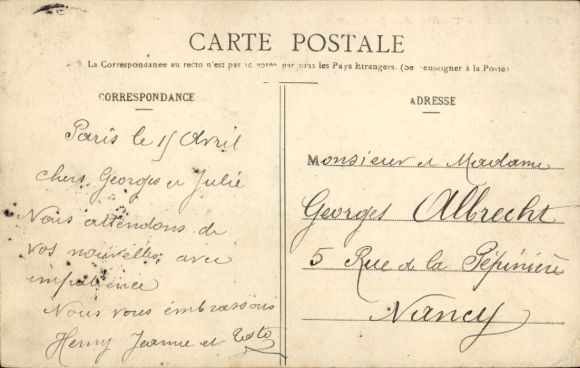 CARTE POSTALE
La Correspondance au recto n'est pas acceptée par tous les Pays Etrangers. (Se renseigner à la Poste)
CORRESPONDANCE
Paris le 15 Avril
chers Georges et Julie
Nous attendons de
vos nouvelles avec
impatience
Nous vous embrassons
Henry Jeanne et
ADRESSE
Monsieur et Madame
Georges Albrecht
5 Rue de la Pépinière
Nancy